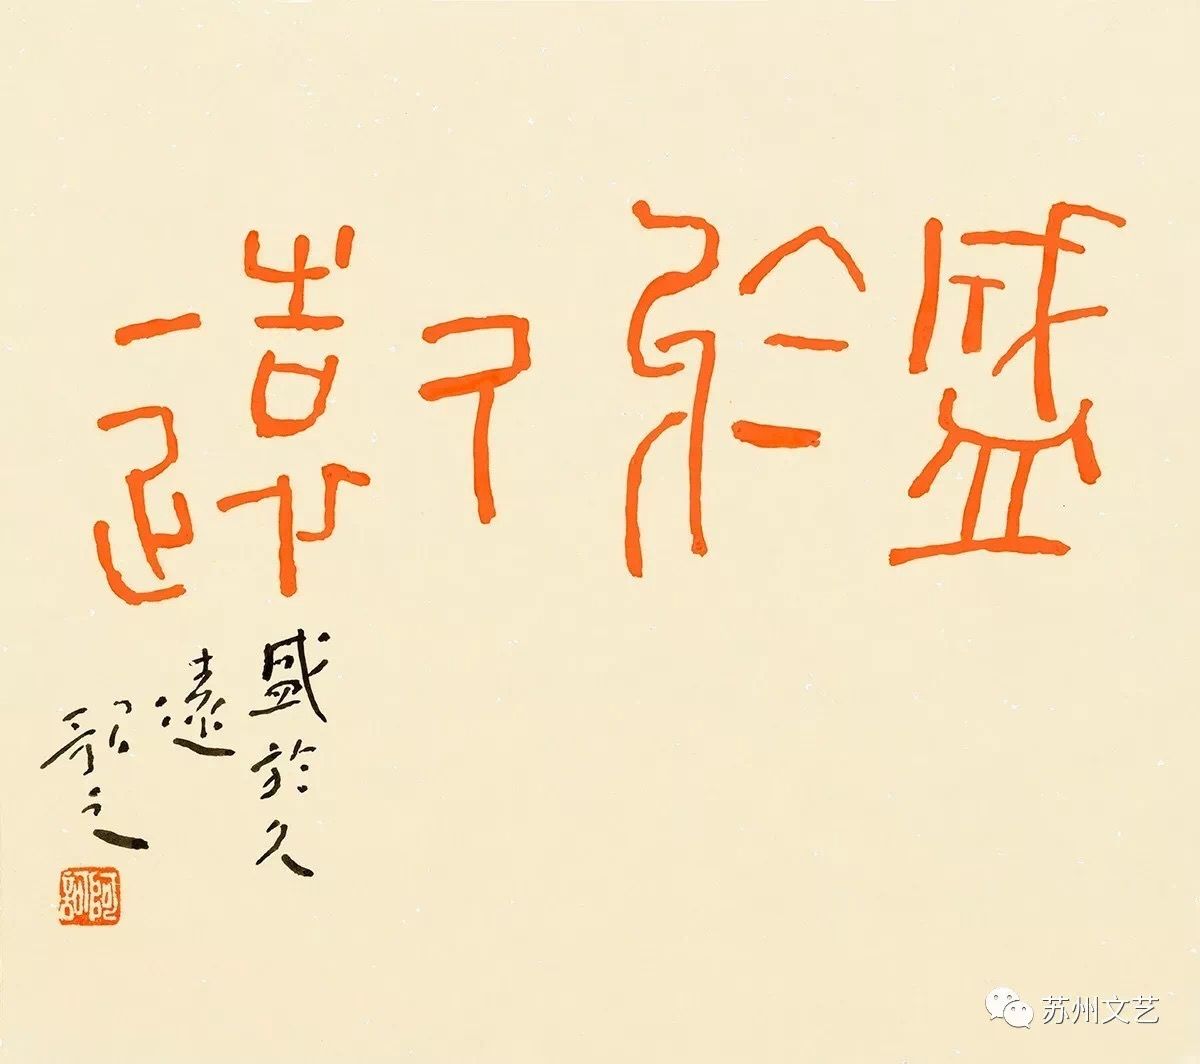 盛於久遠
盛於久
遠
之
苏州文艺